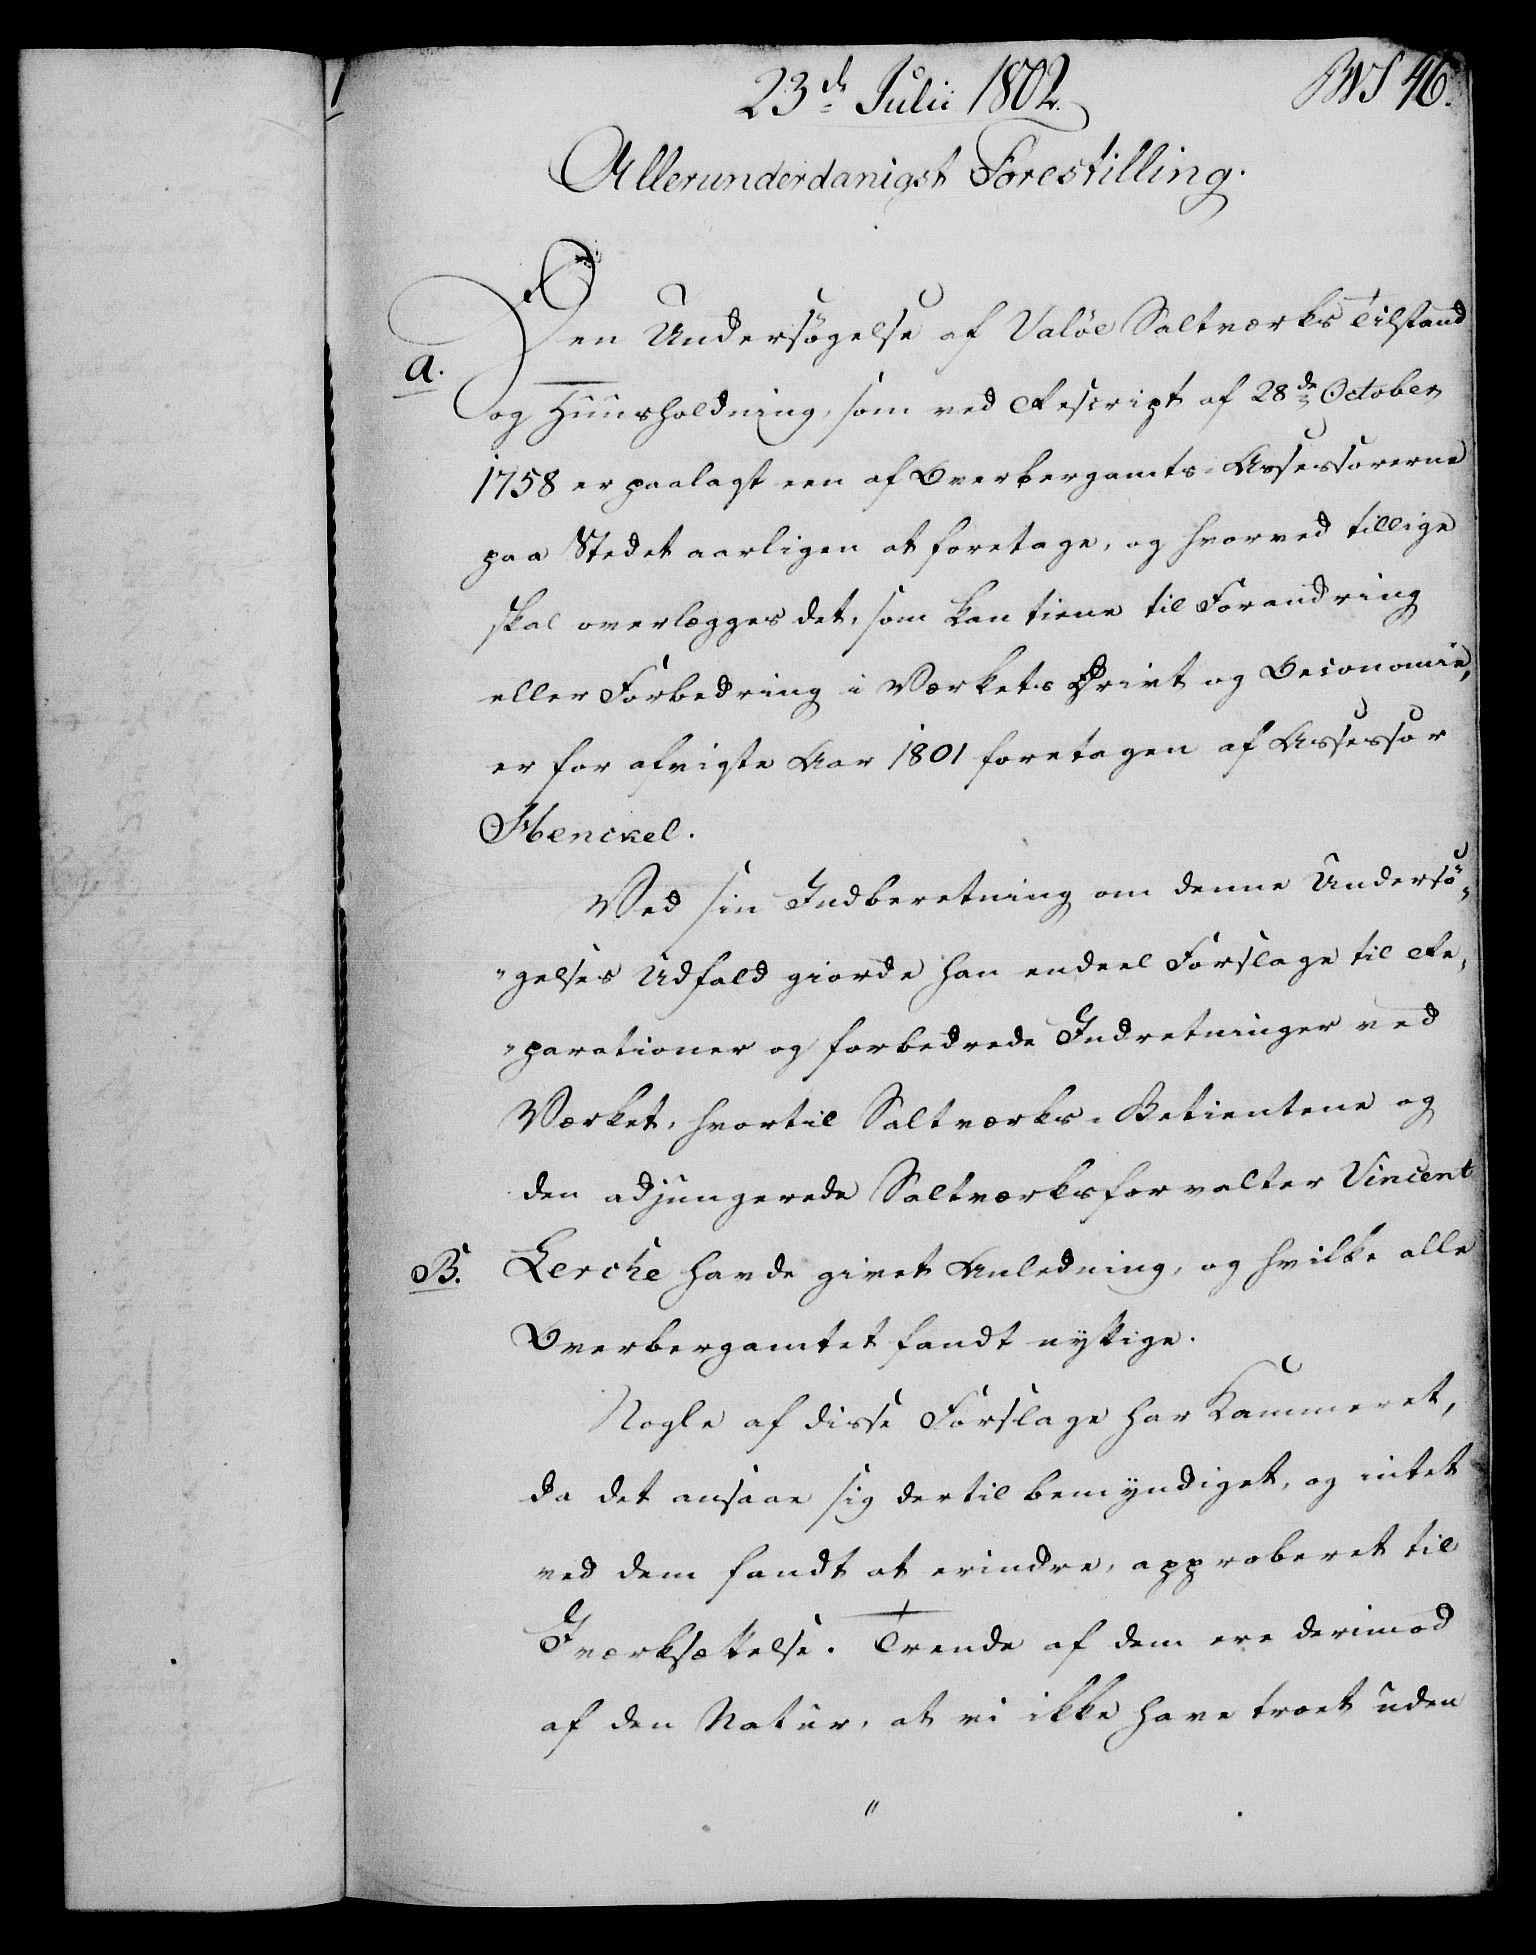 23de Julii 1802.
BWS 46.
Allerunderdanigst Forestilling.
Den Undersøgelse af Valøe Saltværks Tilstand
a.
og Huusholdning, som ved Rescript af 28de October
1758 er paalagt een af Overbergamts-Assessorerne
paa Stedet aarligen at foretage, og hvorved tillige
skal overlægges det, som kan tiene til Forandring
eller Forbedring i Værkets Drivt og Oeconomie,
er for afvigte Aar 1801 foretagen af Assessor
Henckel.
Ved sin Indberetning om denne Undersø-
gelses Udfald giorde han endeel Forslage til Re-
parationer og forbedrede Indretninger ved
Værket, hvortil Saltværks-Betientene og
den adjungerede Saltværksforvalter Vincent
B.
Lerche havde givet Anledning, og hvilke alle
Overbergamtet fandt nyttige.
Nogle af disse Forslage har Kammeret,
da det ansaae sig dertil bemyndiget, og intet
ved dem fandt at erindre, approberet til
Iværksættelse. Trende af dem ere derimod
af den Natur, at vi ikke have troet uden
"